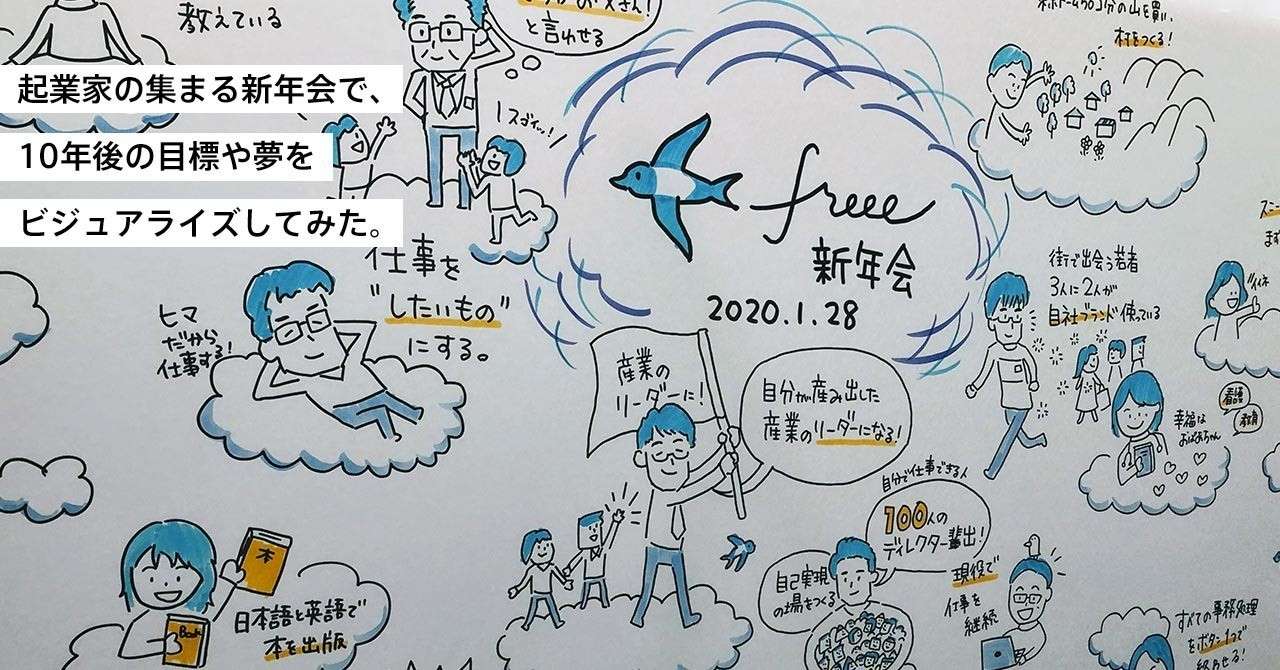 起業家の集まる新年会で、
10年後の目標や夢を
ビジュアライズしてみた。
教えている
お父さん!
と言わせる
スゴイッ!
freee
新年会
2020.1.28
村をつくる!
仕事を
"したいもの"
にする。
ヒマ
だから
仕事する!
産業の
リーダーに!
自分が産み出した
産業のリーダーになる!
街で出会う若者
3人に2人が
自社ブランド使っている
イイネ
幸福な
おばあちゃん
看護
教育
本
Book
日本語と英語で
本を出版
自分で仕事できる人
100人の
ディレクター輩出!
自己実現
の場をつくる
現役で
仕事を
継続
すべての事務処理
をボタン1つで